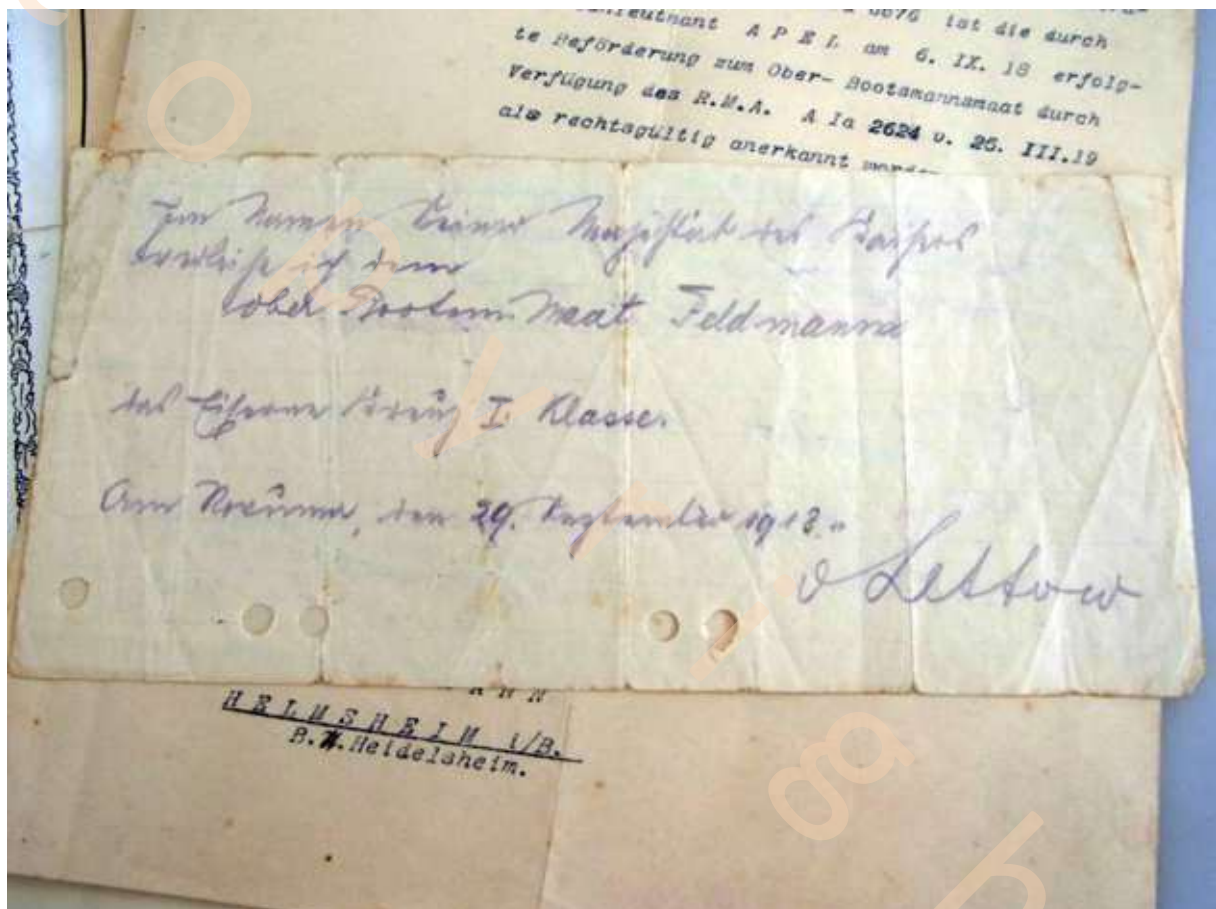 6676 ist die durch
leutnant A P E L am 6. IX. 18 erfolg-
te Beförderung zum Ober- Bootsmannsmaat durch
Verfügung des R.M.A. A Ia 2624 v. 25. III.19
als rechtsgültig anerkannt
Im Namen Seiner Majestät des Kaisers
verleihe ich dem
Ober Bootsm. Maat Feldmann
das Eiserne Kreuz I. Klasse.
Am Rovuma, den 29. September 1918.
v Lettow
HELMSHEIM i/B.
B.A.Heidelsheim.